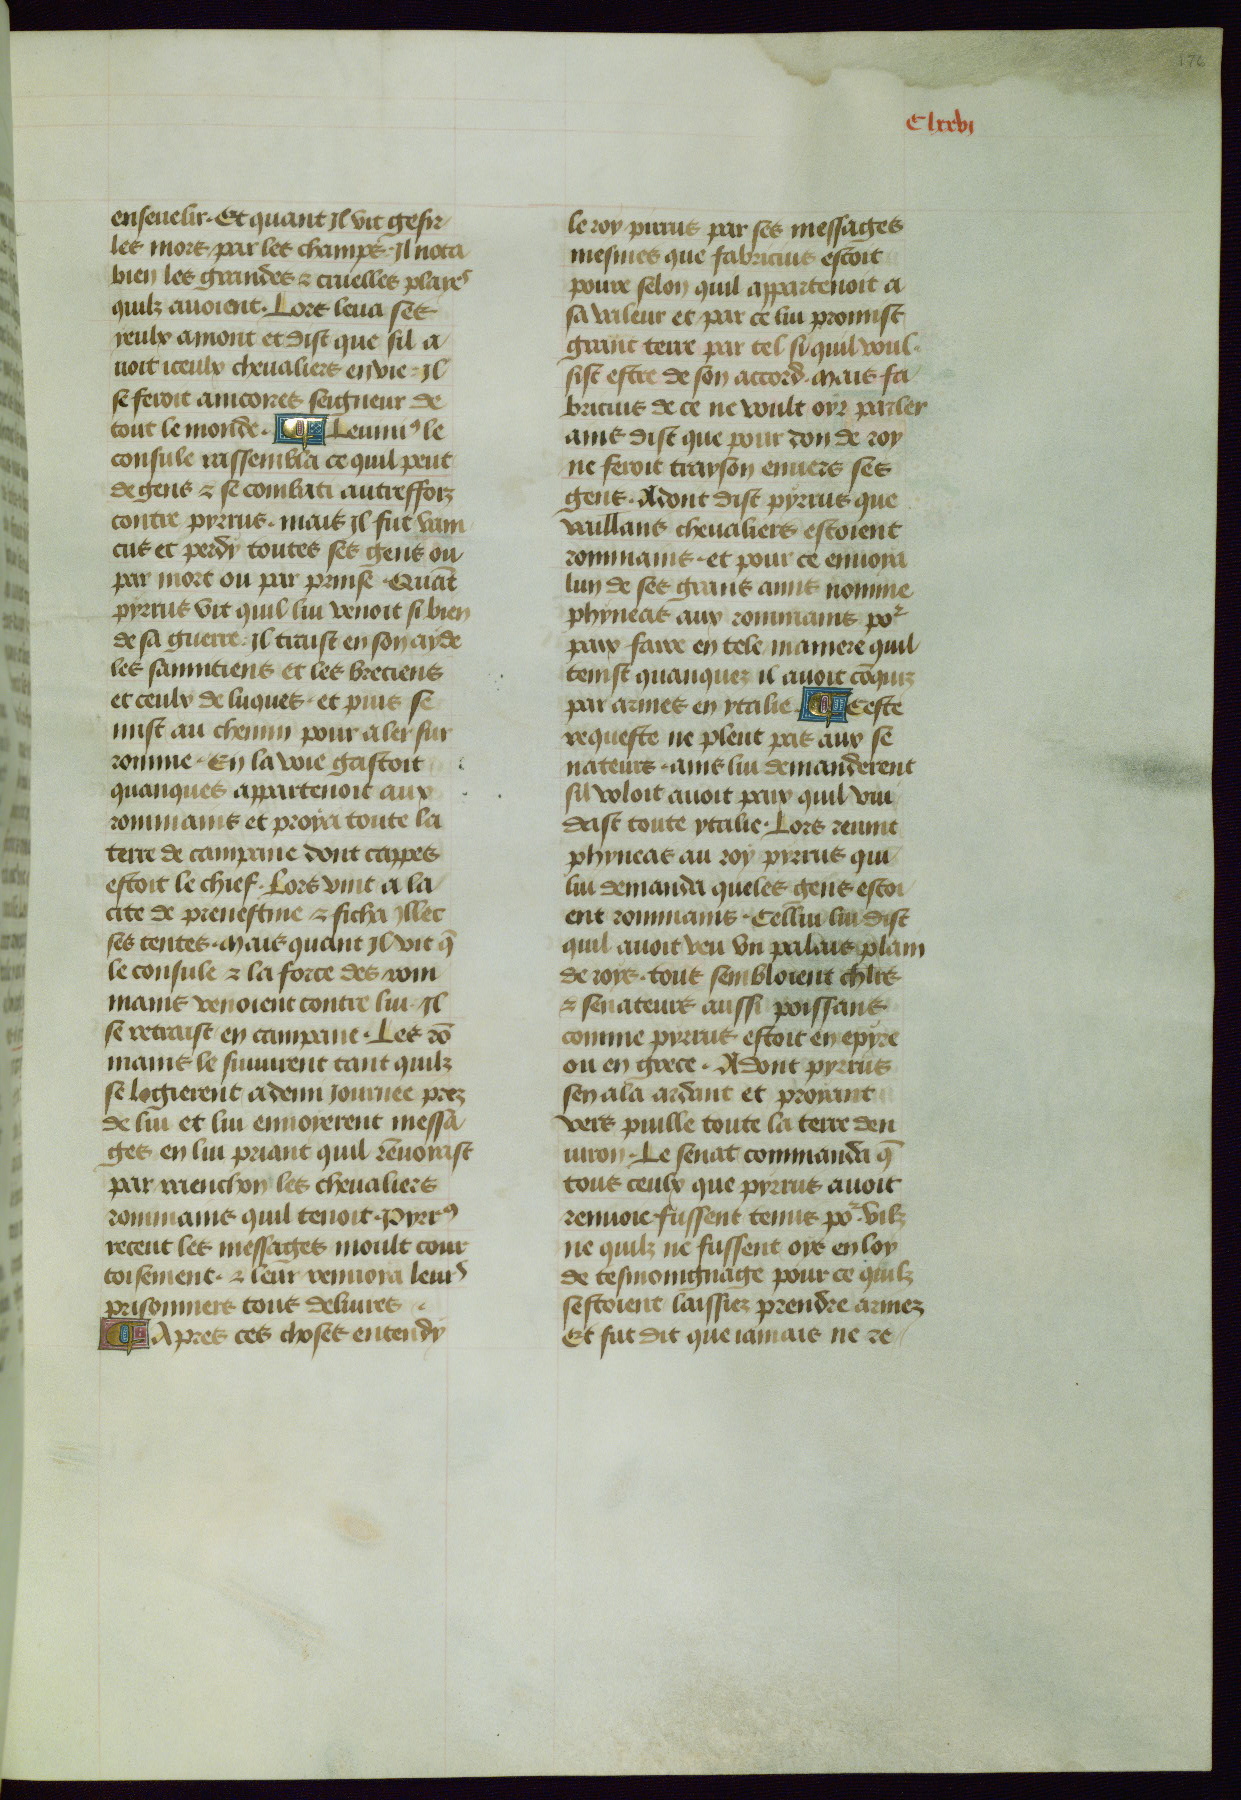 176
Clxxvi
enseuelir. Et quant Jl vit gesir
les mors par les champs. Jl nota
bien les grandes & cruelles playes
quilz auoient. Lors leua ses
yeulx amont et dist que sil a
uoit iceulx cheualiers en vie. Jl
se feroit ancores seigneur de
tout le monde. Leuini9 le
consule rassembla ce quil peut
de gens & se combati autreffoiz
contre pyrrus. mais Jl fut vain
cus et perdy toutes ses gens ou
par mort ou par prinse. Quāt
pyrrus vit quil lui venoit si bien
de sa guerre. Jl traist en son ayde
les samniciens et les breciens
et ceulx de luques. et puis se
mist au chemin pour aler sur
romme. En la voie gastoit
quanques appartenoit aux
rommains et proya toute la
terre de campane dont cappes
estoit le chief. Lors vint a la
cite de prenestine & ficha Jllec
ses tentes. Mais quant Jl vit q̄
le consule & la force des rom
mains venoient contre lui. Jl
se retraist en campane. Les rō
mains le suiuirent tant quilz
se logierent a demi Journee prez
de lui et lui enuoyerent messa
ges en lui priant quil rēuoyast
par raenchon les cheualiers
rommains quil tenoit. Pyrr9
receut les messages moult cour
toisement. & leur renuoya leurs
prisonniers tous deliures.
Apres ces choses entendy
le roy pirrus par ses messages
mesmes que fabricius estoit
poure selon quil appartenoit a
sa valeur et par ce lui promist
grant terre par tel si quil voul
sist estre de son accord. Mais fa
bricius de ce ne voult oyr parler
ains dist que pour don de roy
ne feroit trayson enuers ses
gens. Adont dist pyrrus que
vaillans cheualiers estoient
rommains. et pour ce enuoya
lun de ses grans amis nomme
phyneas aux rommains por
paix faire en tele maniere quil
tenist quanquez il auoit cōquiz
par armes en ytalie. Ceste
requeste ne pleut pas aux se
nateurs. ains lui demanderent
sil voloit auoir paix quil vui
dast toute ytalie. Lors reuint
phyneas au roy pyrrus qui
lui demanda queles gens estoi
ent rommains. Cellui lui dist
quil auoit veu vn palais plain
de roys. tous sembloient chl̄rs
& senateurs aussi poissans
comme pyrrus estoit en epyre
ou en grece. Adont pyrrus
sen ala ardant et proyant
vers puille toute la terre den
uiron. Le senat commanda q̄
tous ceulx que pyrrus auoit
renuoie fussent tenus por vilz
ne quilz ne fussent oys en loy
de tesmoingnage pour ce quilz
sestoient laissiez prendre armez
Et fut dit que iamais ne re